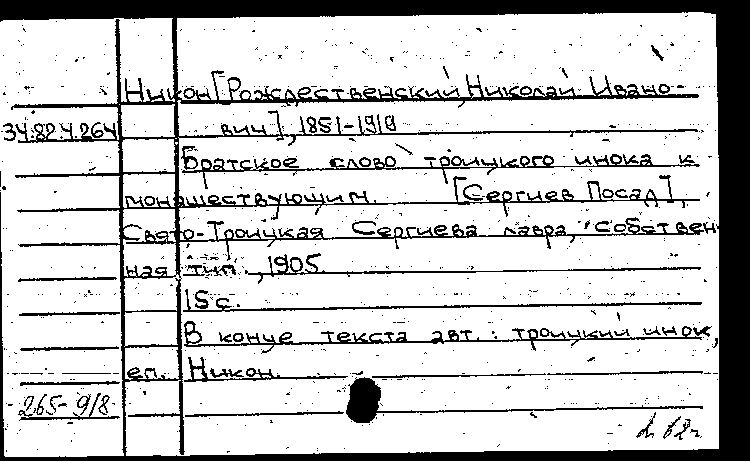 Никон [Рождественский, Николай Ивано-
34.82.4.264 вич], 1851-1918
Братское слово троицкого инока к
монашествующим. [Сергиев Посад],
Свято-Троицкая Сергиева лавра, Собствен-
ная тип., 1905.
15с.
В конце текста авт.: троицкий инок,
еп. Никон.
265-9/8